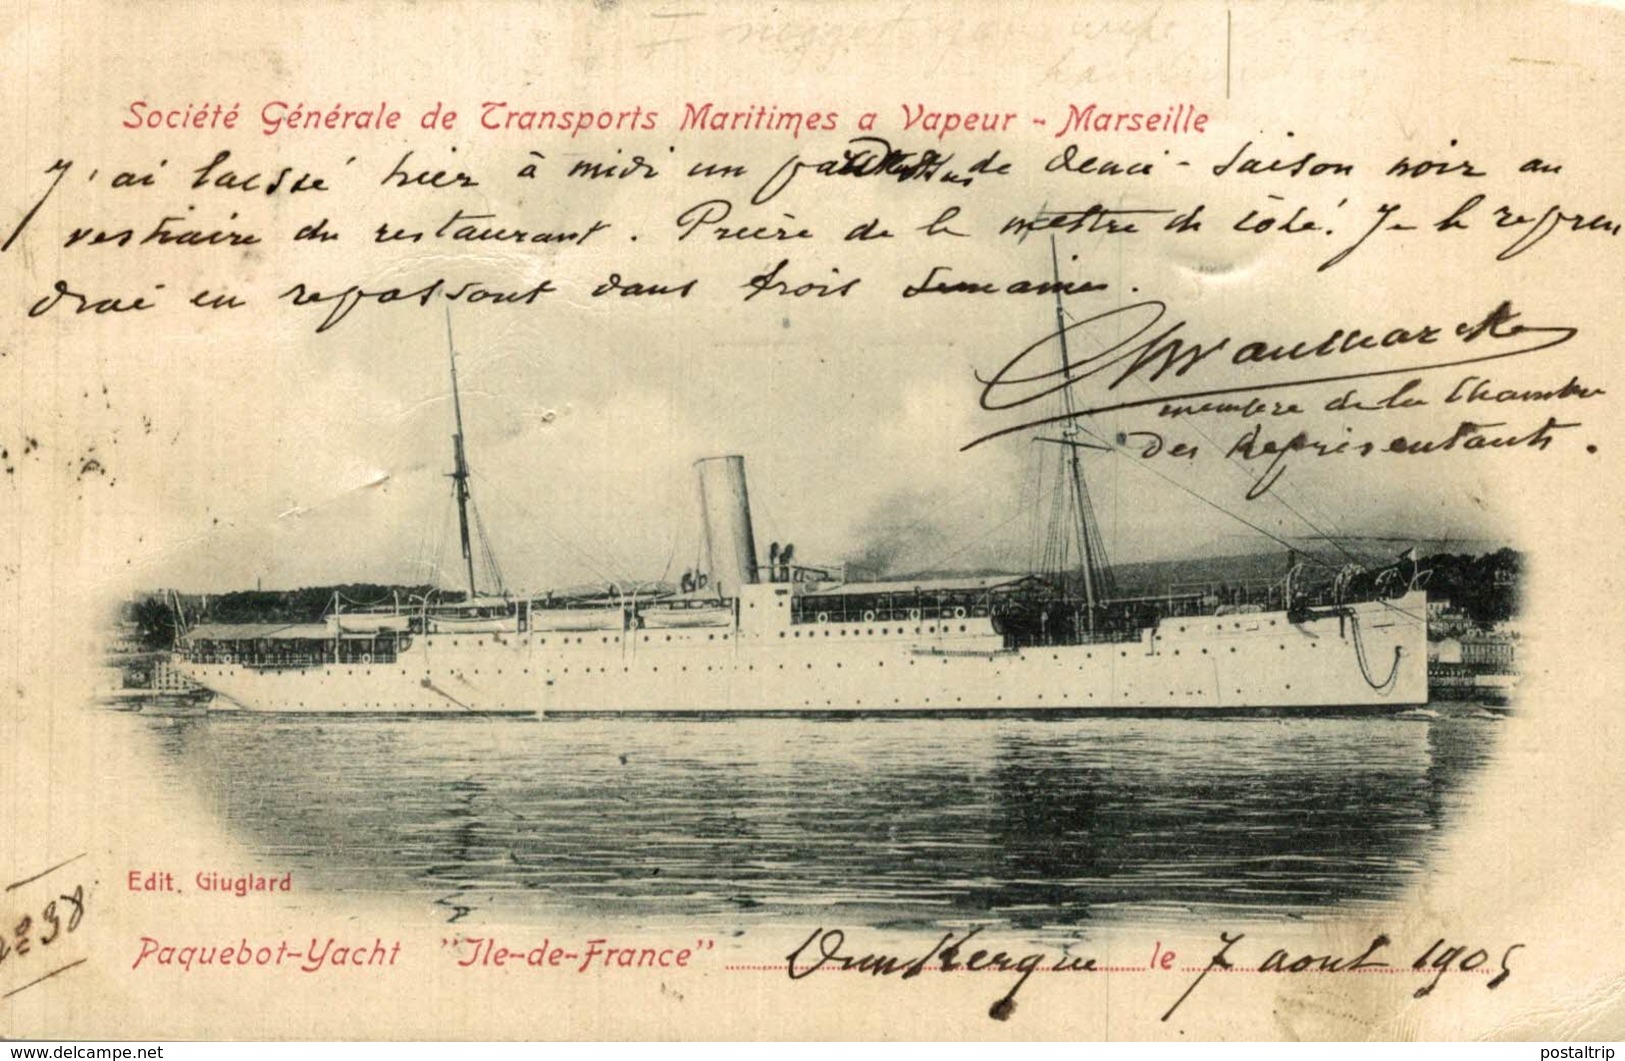 Société Générale de Transports Maritimes a Vapeur - Marseille
J'ai laissé hier à midi un de demi-saison noir au
vestiaire du restaurant. Prière de le mettre de côté. Je le repren
drai en repassant dans trois semaines.
membre de la Chambre
des Représentants.
Edit. Giuglard
n° 38
Paquebot-Yacht "Ile-de-France" Dunkerque le 7 aout 1905
www.delcampe.net
postaltrip